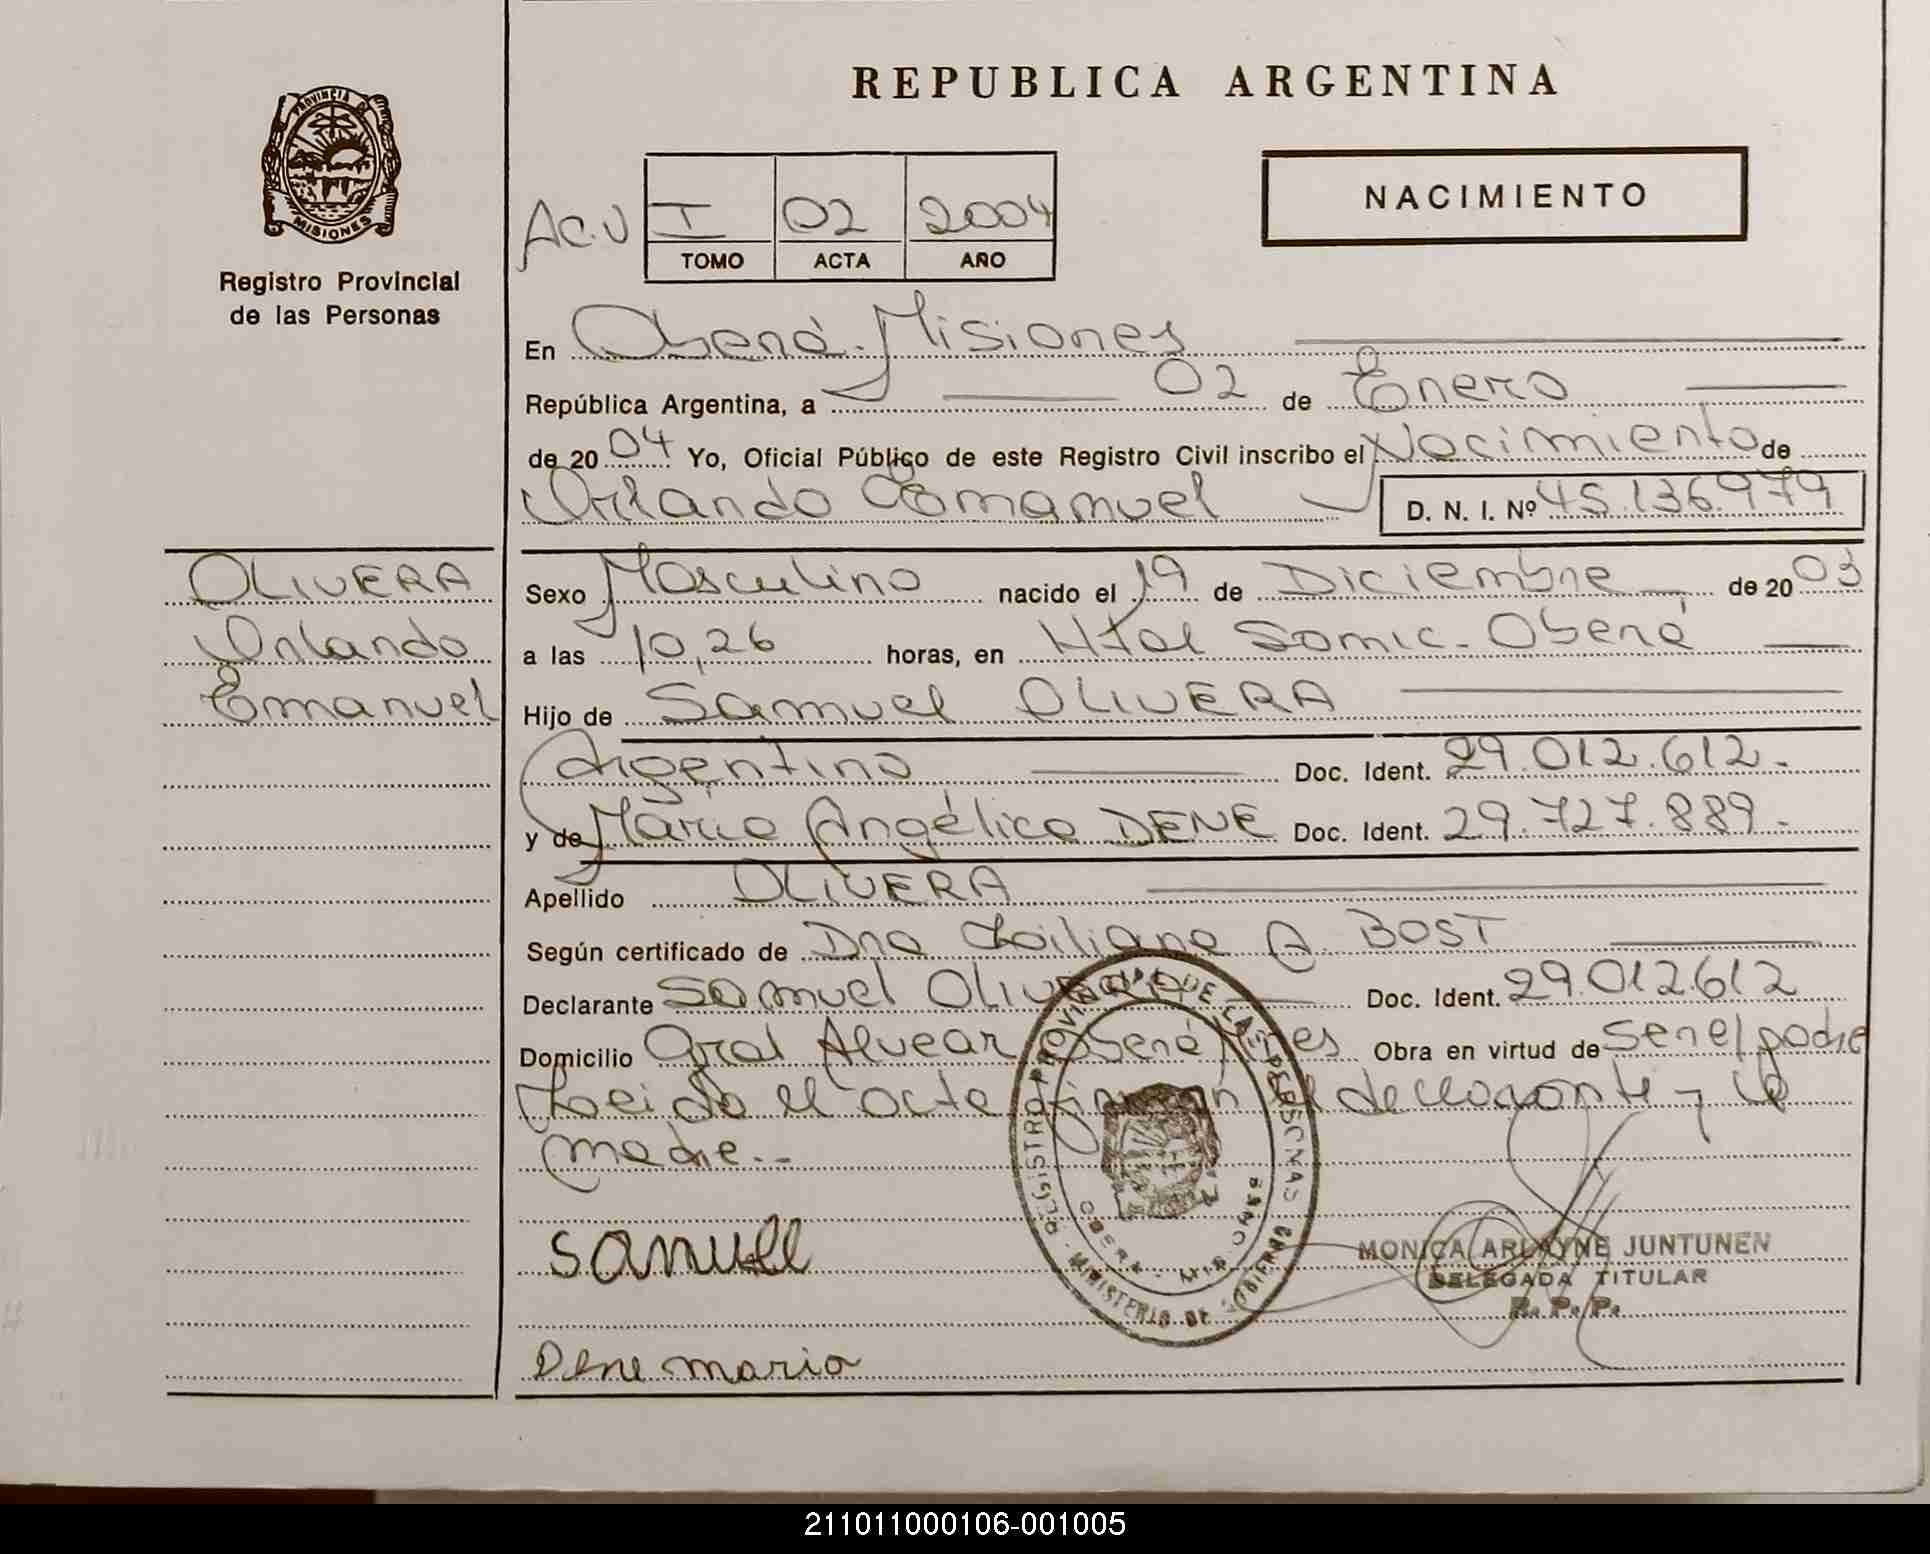 REPUBLICA ARGENTINA
PROVINCIA DE
MISIONES
Registro Provincial
de las Personas
NACIMIENTO
Ac.U I 02 2004
TOMO ACTA AÑO
En Oberá - Misiones
República Argentina, a 02 de Enero
de 20 04 Yo, Oficial Público de este Registro Civil inscribo el Nacimiento de
Orlando Emanuel D. N. I. Nº 45.136.979
OLIVERA
Orlando
Emanuel
Sexo Masculino nacido el 19 de Diciembre de 20 03
a las 10,26 horas, en Htal Samic - Oberá
Hijo de Samuel OLIVERA
Argentino Doc. Ident. 29.012.612.-
y de María Angélica DENE Doc. Ident. 29.727.889.-
Apellido OLIVERA
Según certificado de Dra Liliana A. BOST
Declarante Samuel Olivera Doc. Ident. 29.012.612
Domicilio Gral Alvear Oberá Mnes Obra en virtud de ser el padre
Leido el acta firman el declarante y la
madre.-
REGISTRO PROVINCIAL DE LAS PERSONAS - MINISTERIO DE GOBIERNO
OBERA - MISIONES
samuel
MONICA ARLAYNE JUNTUNEN
DELEGADA TITULAR
R. P. P.
Dene maria
211011000106-001005